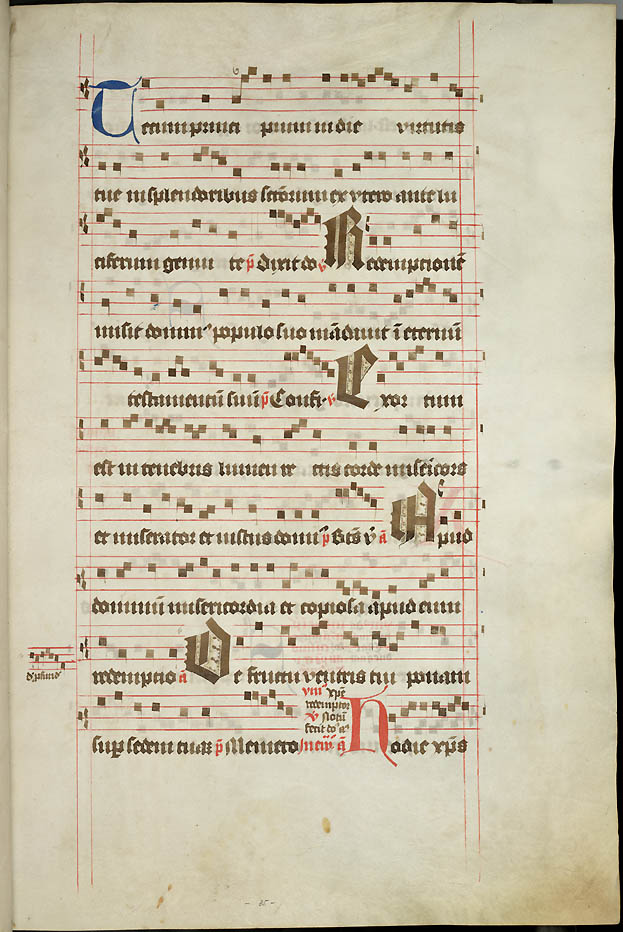 Tecum princi pium in die virtutis
tue in splendoribus sctorum ex vtero ante lu
ciferum genui te p̄ Dixit do v̄ Redemptionē
misit domin⁹ populo suo mādauit ī eternū
testamentū suū p̄ Confi. v̄ Exor tum
est in tenebris lumen re ctis corde misericors
et miserator et iustus domin⁹ p̄ Btūs v̄ a Apud
dominū misericordia et copiosa apud eum
redemptio a De fructu ventris tui ponam
D̄ pfund̄
sup sedem tuam p̄ Memēto
ympn⁹ xpē
redemptor
v̄ Notū
fecit do⁹ aᵃ
in euāg a Hodie xp̄s
- 35 -